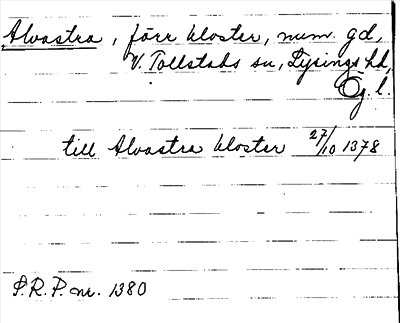 Alvastra, förr kloster, num. gd,
V. Tollstads sn, Lysings hd,
Ög. l.
till Alvastra kloster 27/10 1378
S.R.P. nr. 1380